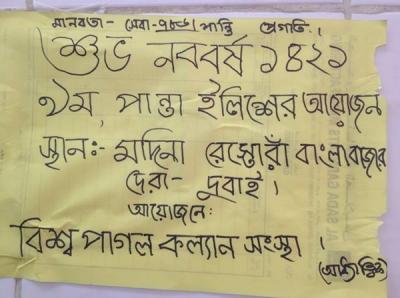 মানবতা - সেবা - শান্তি প্রগতি।
শুভ নববর্ষ ১৪২১
৯ম, পান্তা ইলিশের আয়োজন
স্থান:- মদিনা রেস্তোরাঁ বাংলাবাজার
দেরা - দুবাই।
আয়োজনে:
বিশ্ব পাগল কল্যান সংস্থা।